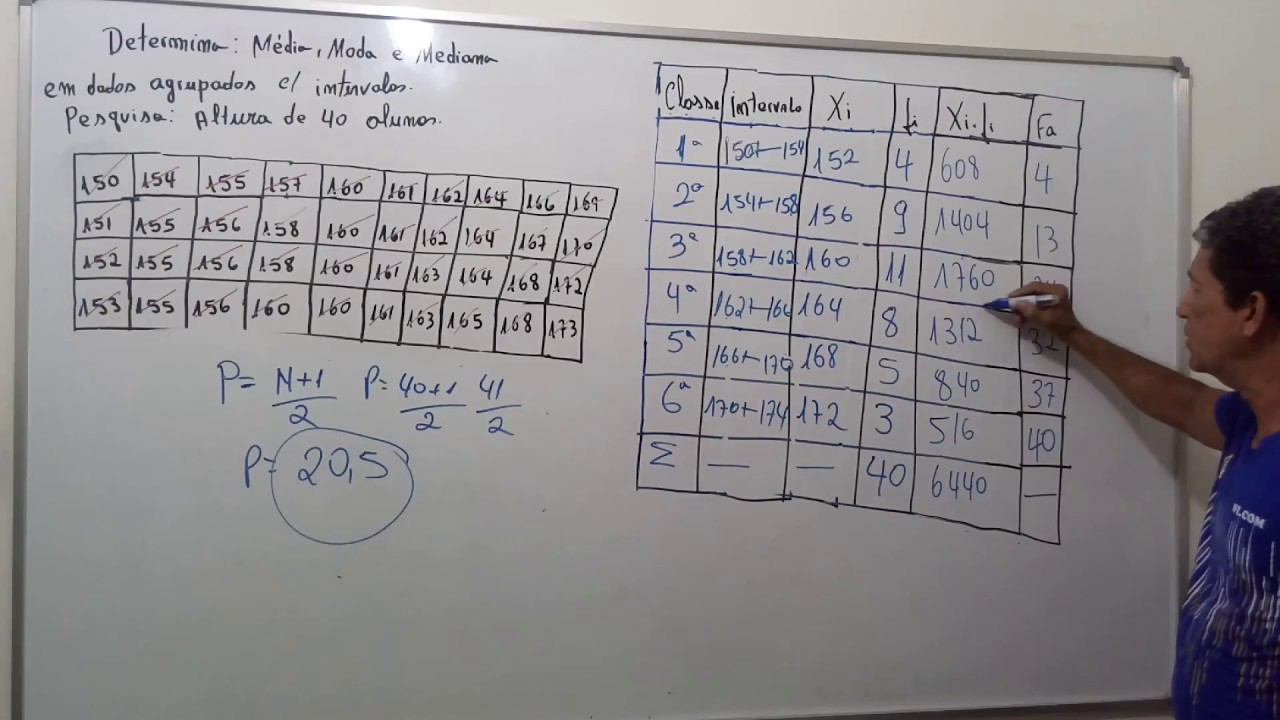 Determina: Média, Moda e Mediana
em dados agrupados c/ intervalos.
Pesquisa: Altura de 40 alunos.
150 154 155 157 160 161 162 164 166 169
151 155 156 158 160 161 162 164 167 170
152 155 156 158 160 161 163 164 168 172
153 155 156 160 160 161 163 165 168 173
P= N+1/2 P= 40+1/2 41/2
P= 20,5
Classe intervalo Xi fi Xi.fi Fa
1ª 150⊢154 152 4 608 4
2ª 154⊢158 156 9 1404 13
3ª 158⊢162 160 11 1760
4ª 162⊢166 164 8 1312 32
5ª 166⊢170 168 5 840 37
6ª 170⊢174 172 3 516 40
Σ — — 40 6440 —